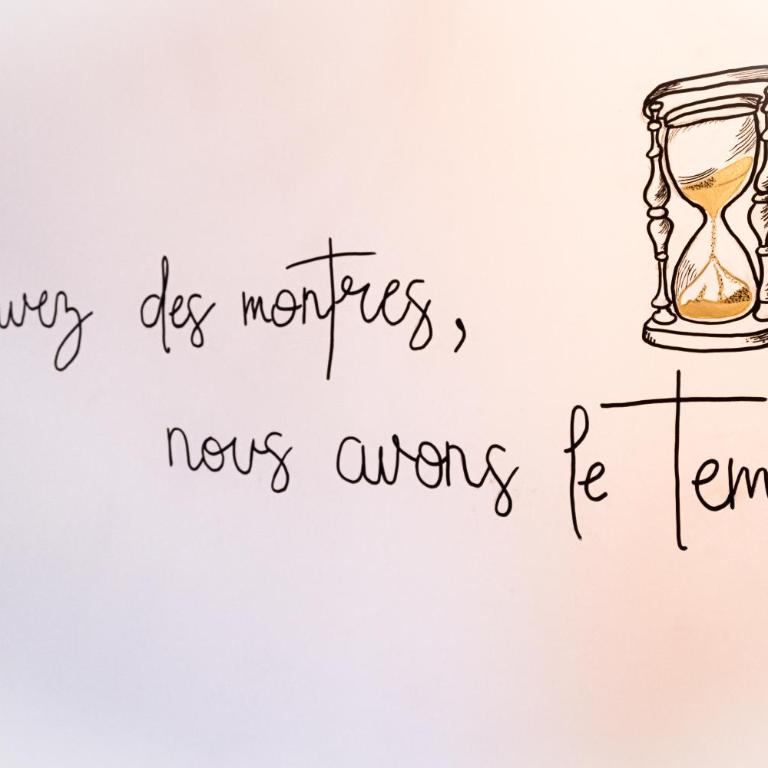 vez des montres,
nous avons le Tem